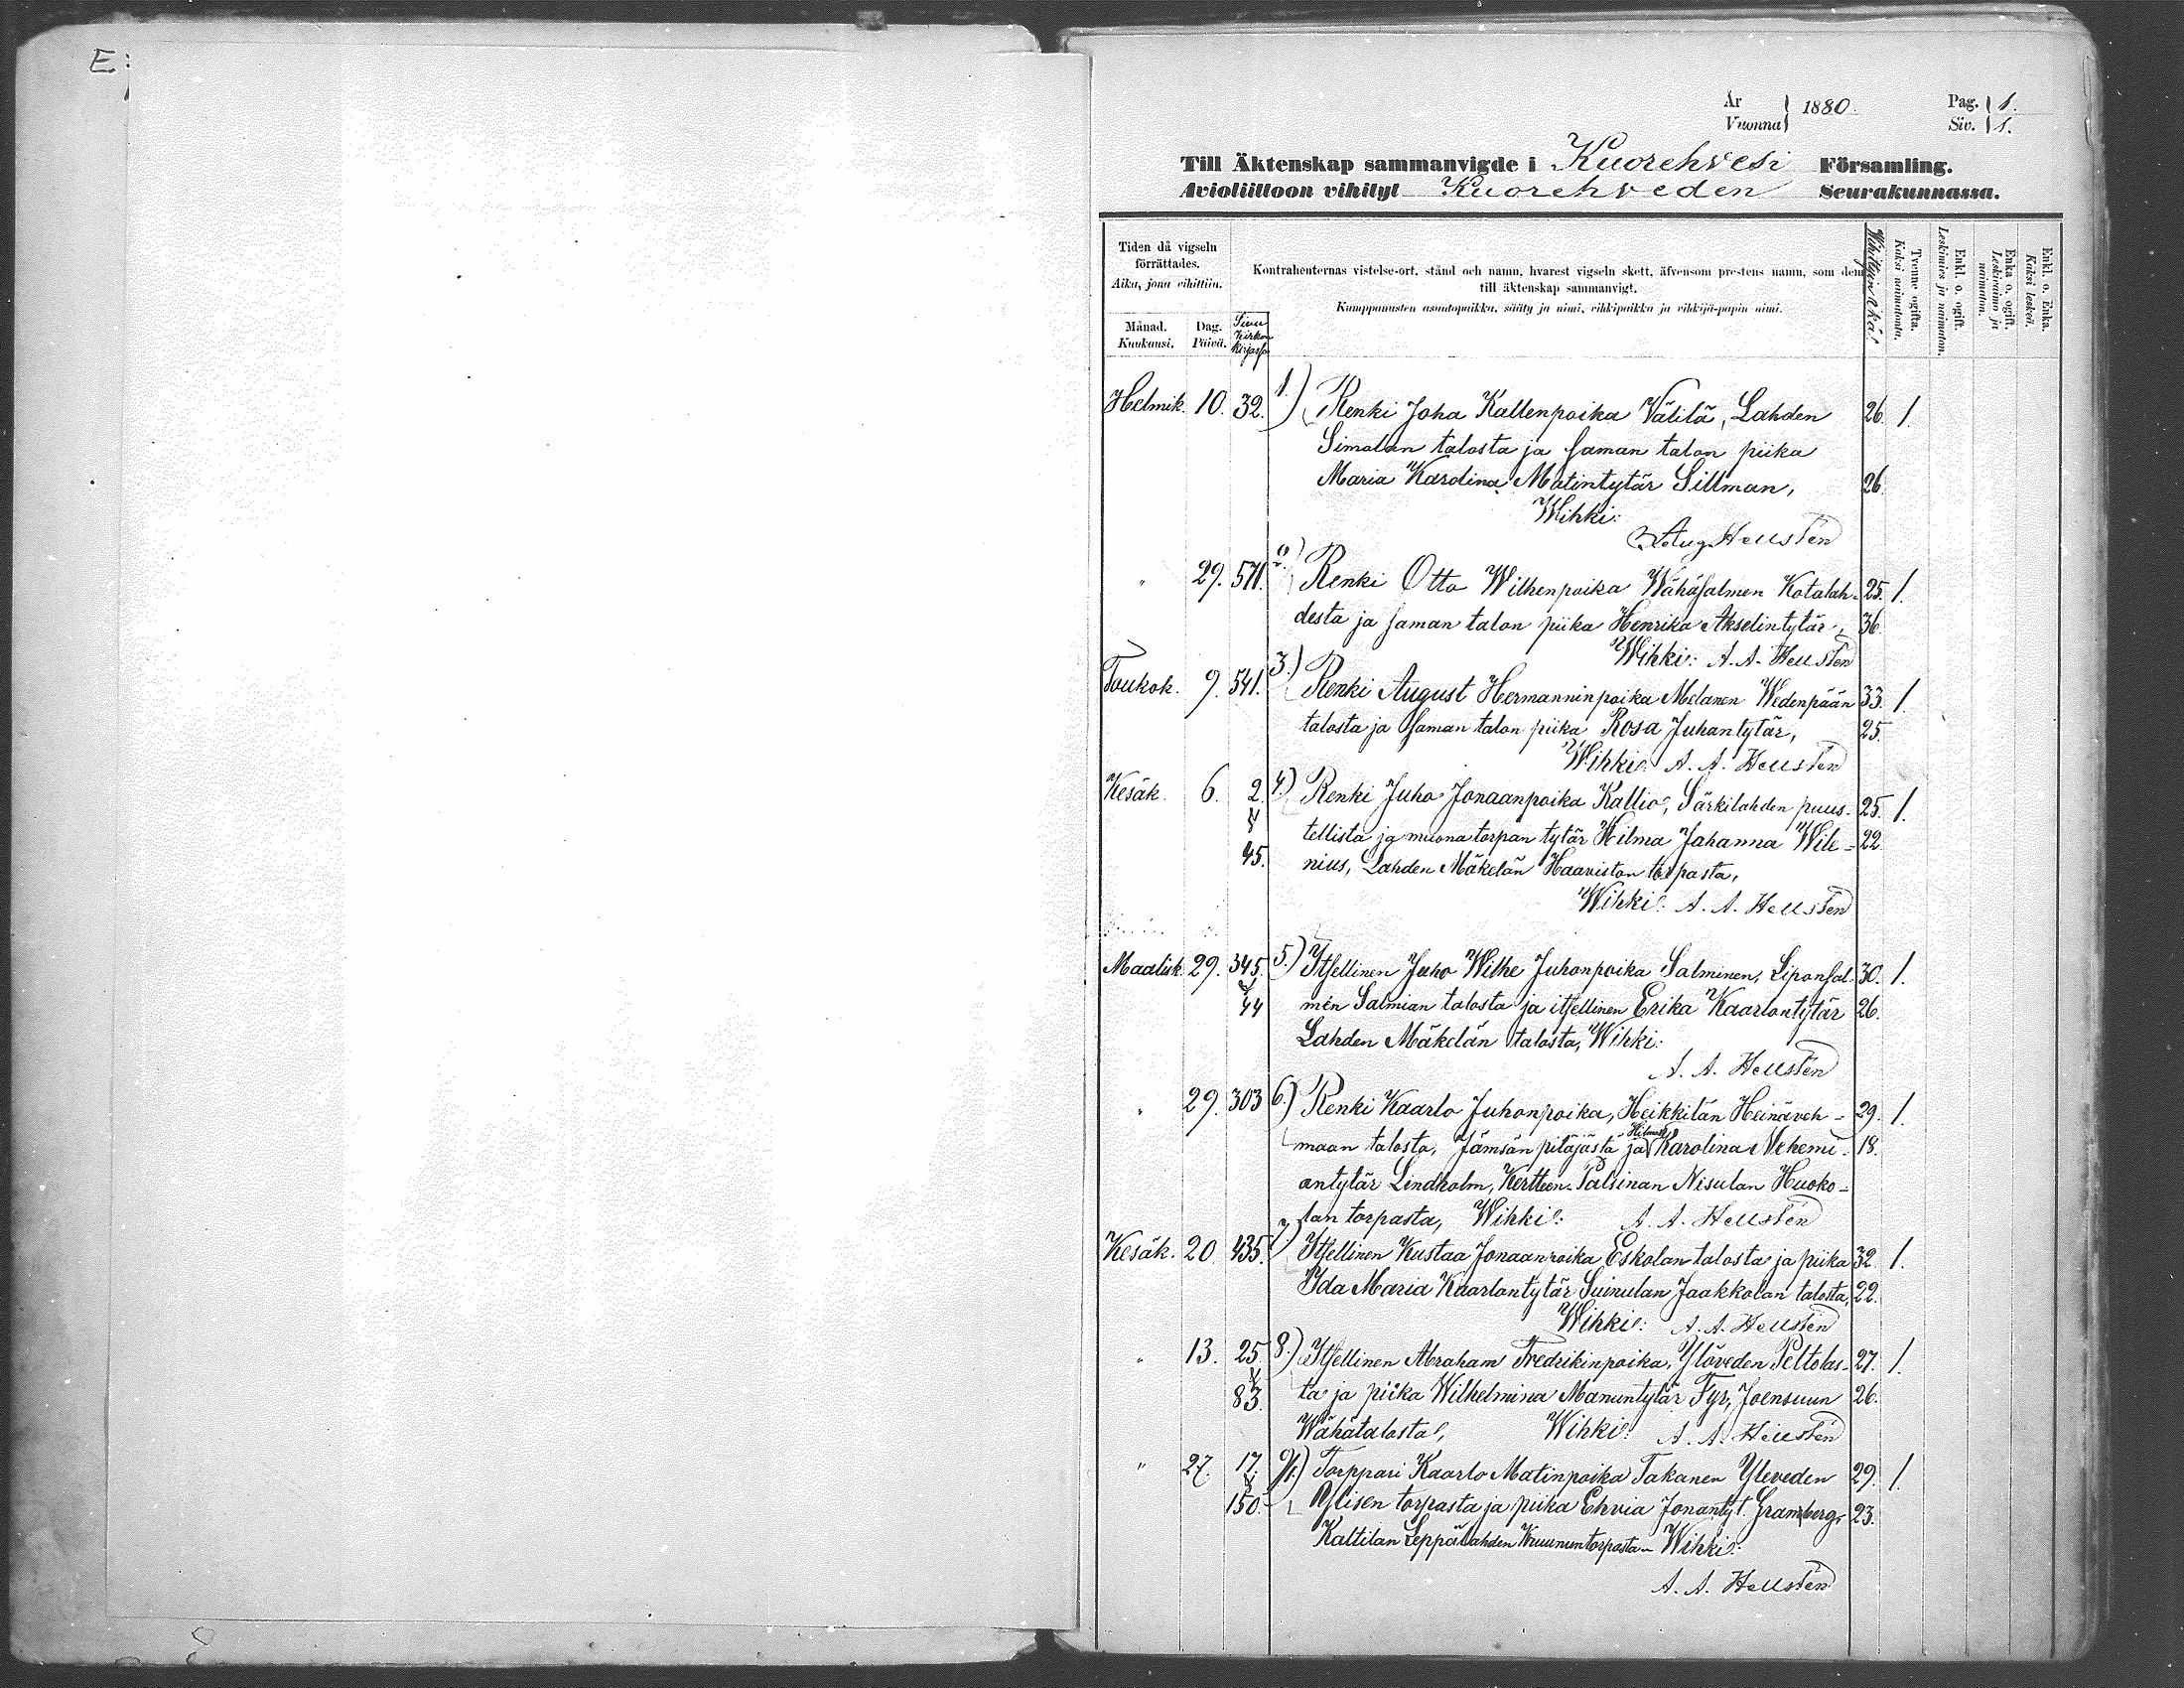 E:
År Vuonna 1880. Pag. Siv. 1. 1.
Till Äktenskap sammanvigde i Kuorehvesi Församling.
Avioliittoon vihityt Kuorehveden Seurakunnassa.
Tiden då vigseln förrättades.
Aika, jona vihittiin.
Månad. Kuukausi.
Dag. Päivä.
Sivu Kirkon kirjassa
Kontrahenternas vistelse-ort, stånd och namn, hvarest vigseln skett, äfvensom prestens namn, som dem
till äktenskap sammanvigt.
Kumppanusten asuntopaikka, sääty ja nimi, vihkipaikka ja vihkijä-papin nimi.
Wihittyin ikä.
Tvenne ogifta. Kaksi naimatonta.
Enkl. o. ogift. Leskimies ja naimaton.
Enka o. ogift. Leskivaimo ja naimaton.
Enkl. o. Enka. Kaksi leskeä.
Helmik. 10. 32. 1.) Renki Joha Kallenpoika Välilä, Lahden 26 1.
Simolan talosta ja saman talon piika
Maria Karolina Matintytär Sillman, 26.
Wihki:
Aug. Hellstén
" 29. 571. 2) Renki Otto Wilhenpoika Wähäsalmen Kotalah- 25. 1.
desta ja saman talon piika Henrika Akselintytär, 36
Wihki: A. A. Hellstén
Toukok. 9. 541. 3.) Renki August Hermanninpoika Melanen Wedenpään 33. 1.
talosta ja saman talon piika Rosa Juhantytär, 25.
Wihki: A. A. Hellstén
Kesäk. 6. 2. 4.) Renki Juho Jonaanpoika Kallio, Särkilahden puus- 25. 1.
tellista ja muonatorpan tytär Wilma Johanna Wile- 22.
45. nius, Lahden Mäkelän Haaviston torpasta,
Wihki: A. A. Hellstén
Maalisk. 29. 345. 5.) Itsellinen Juho Wilhe Juhonpoika Salminen, Liponsal- 30. 1.
44 men Salmian talosta ja itsellinen Erika Kaarlontytär 26.
Lahden Mäkelän talosta, Wihki:
A. A. Hellstén
" 29. 303 6.) Renki Kaarlo Juhonpoika, Heikkilän Heinäveh- 29. 1.
maan talosta, Jämsän pitäjästä ja Hilma Karolina Nehemi- 18.
antytär Lindholm, Kertteen-Palsinan Nisulan Huoko-
lan torpasta, Wihki: A. A. Hellstén
Kesäk. 20. 435. 7.) Itsellinen Kustaa Jonaanpoika Eskolan talosta ja piika 32. 1.
Ida Maria Kaarlontytär Suinulan Jaakkolan talosta, 22.
Wihki: A. A. Hellstén
" 13. 25. 8.) Itsellinen Abraham Fredrikinpoika, Ylöveden Peltolas- 27. 1.
83. ta ja piika Wilhelmina Manuntytär Fyr, Joensuun 26.
Wähätalosta, Wihki: A. A. Hellstén
" 27. 17. 9.) Torppari Kaarlo Matinpoika Takanen Yleveden 29. 1.
150. Ylisen torpasta ja piika Ehvia Jonantyt. Gramberg, 23.
Kaltilan Leppälahden Kruununtorpasta Wihki:
A. A. Hellstén